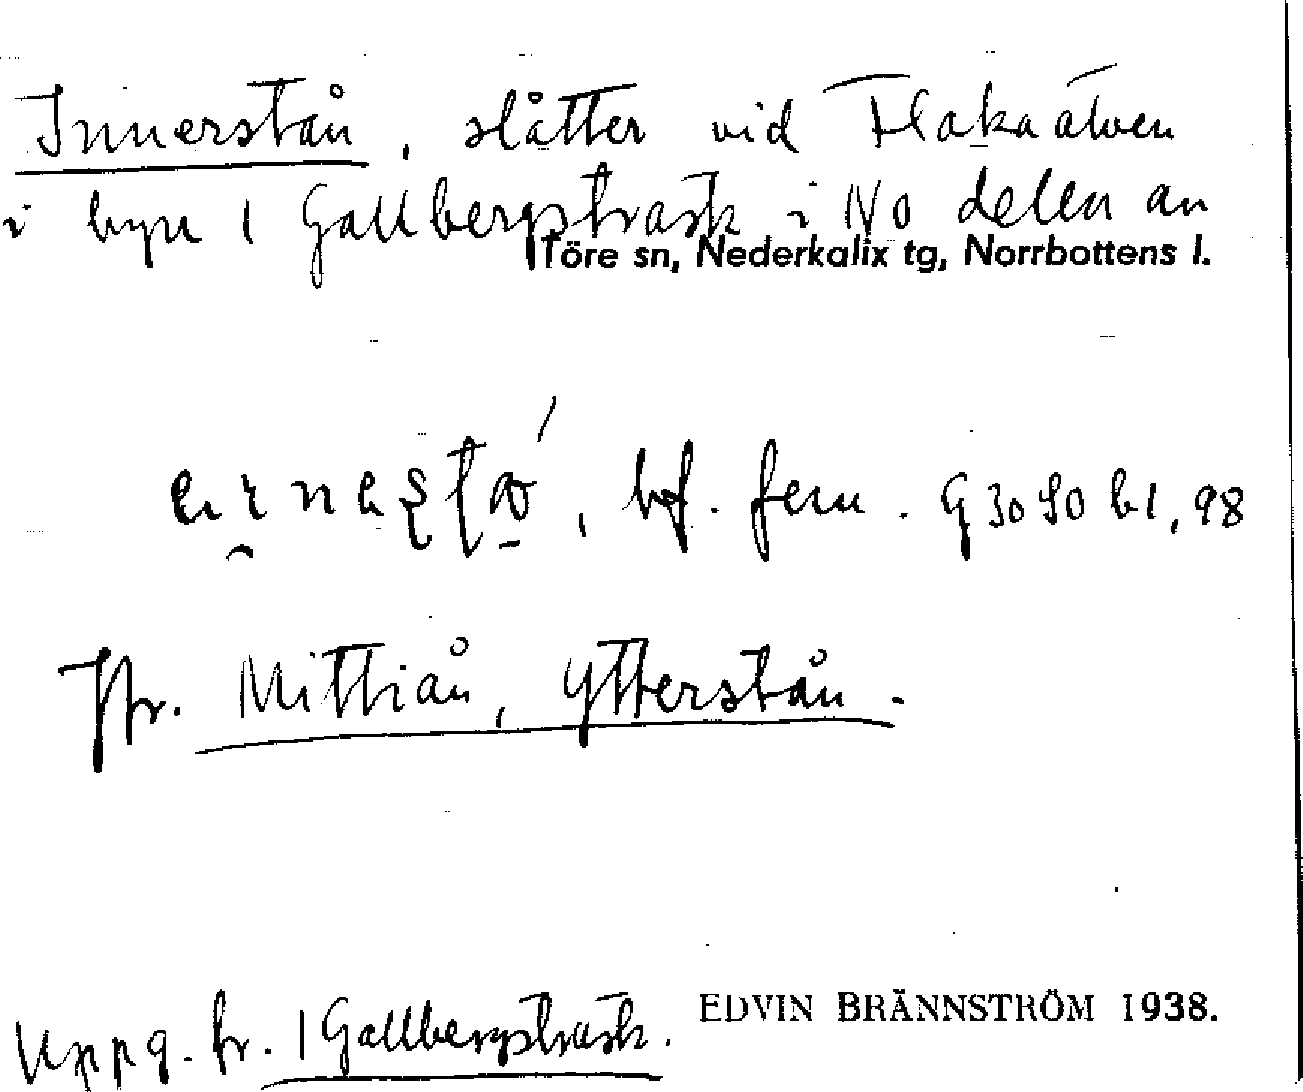 Innerstån, slåtter vid Flakaälven
i byn 1 Gallbergsträsk i NO delen av
Töre sn, Nederkalix tg, Norrbottens l.
, bf. fem. G 3090 b1, 98
Jfr. Mittiån, Ytterstån.
Uppg. fr. 1 Gallbergsträsk. EDVIN BRÄNNSTRÖM 1938.